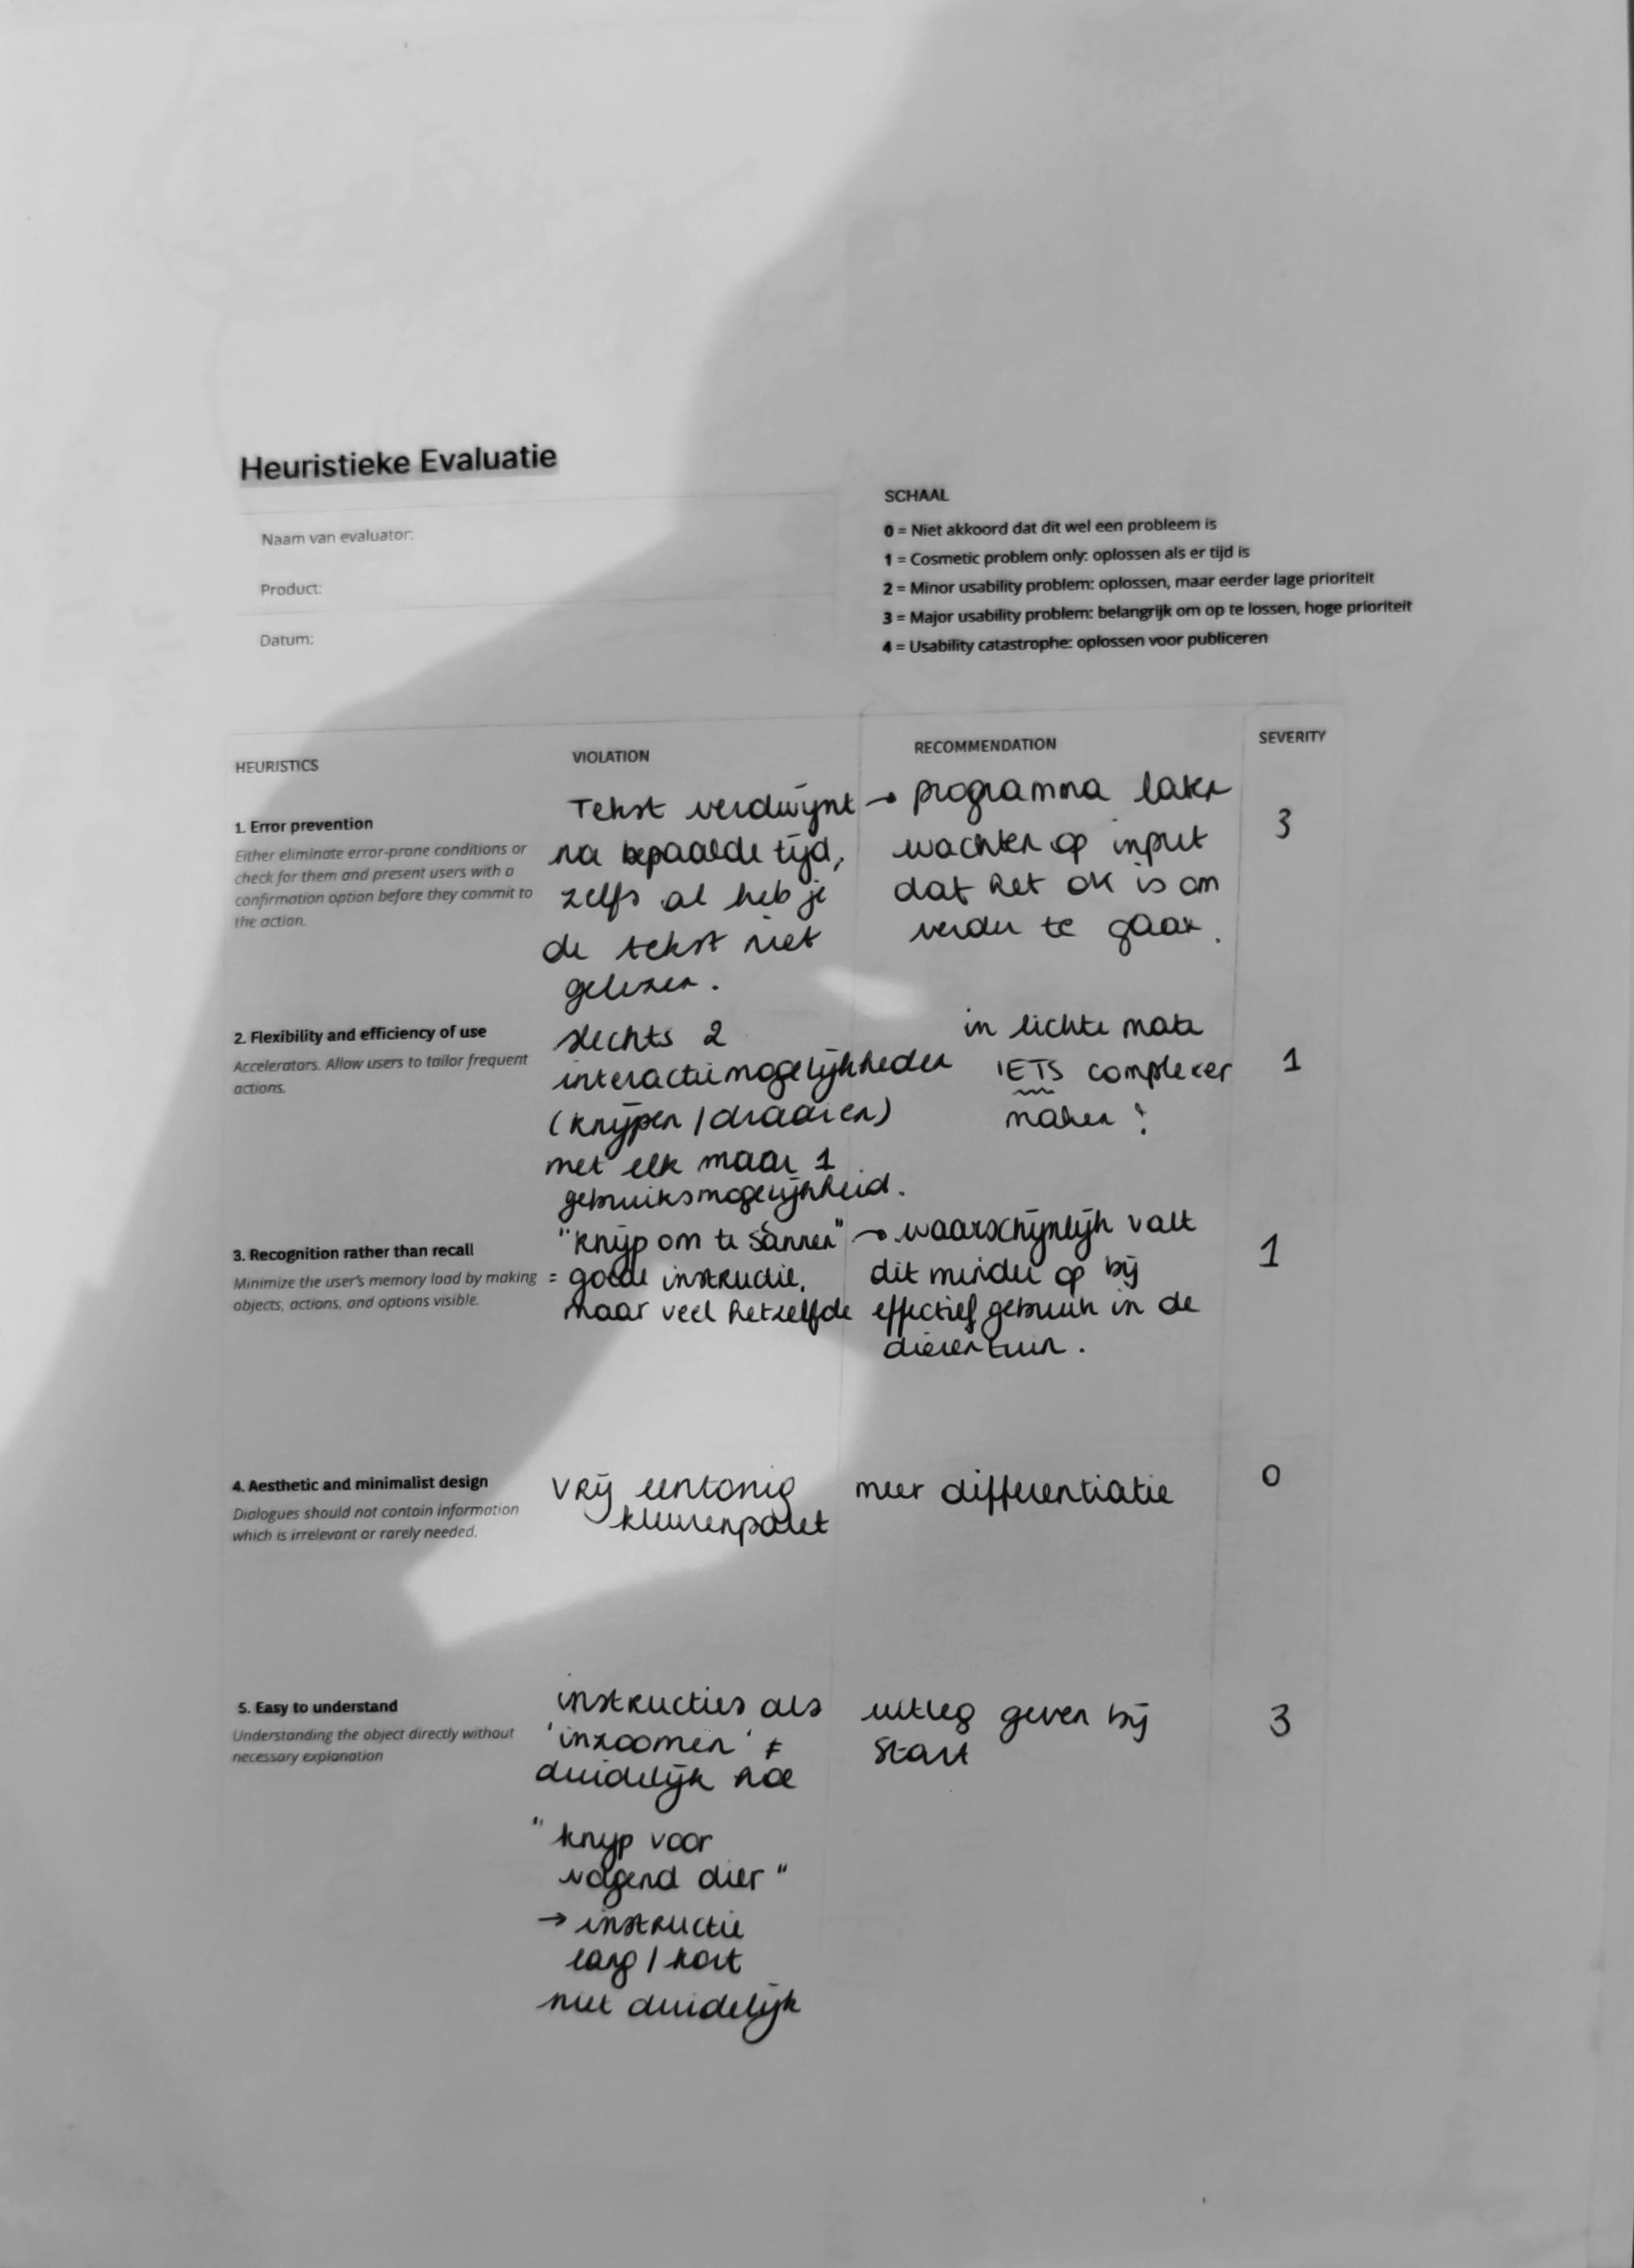 Heuristieke Evaluatie
Naam van evaluator:
Product:
Datum:
SCHAAL
0 = Niet akkoord dat dit wel een probleem is
1 = Cosmetic problem only: oplossen als er tijd is
2 = Minor usability problem: oplossen, maar eerder lage prioriteit
3 = Major usability problem: belangrijk om op te lossen, hoge prioriteit
4 = Usability catastrophe: oplossen voor publiceren
HEURISTICS
VIOLATION
RECOMMENDATION
SEVERITY
1. Error prevention
Either eliminate error-prone conditions or
check for them and present users with a
confirmation option before they commit to
the action.
Tekst verdwijnt →
na bepaalde tijd,
zelfs al heb je
de tekst niet
gelezen.
programma laten
wachten op input
dat het ok is om
verder te gaan.
3
2. Flexibility and efficiency of use
Accelerators. Allow users to tailor frequent
actions.
slechts 2
interactiemogelijkheden
(knijpen / draaien)
met elk maar 1
gebruiksmogelijkheid.
in lichte mate
IETS complexer
maken
1
3. Recognition rather than recall
Minimize the user's memory load by making
objects, actions, and options visible.
"knijp om te scannen" →
= goede instructie,
maar veel hetzelfde
waarschijnlijk valt
dit minder op bij
effectief gebruik in de
dierentuin.
1
4. Aesthetic and minimalist design
Dialogues should not contain information
which is irrelevant or rarely needed.
vrij eentonig
kleurenpalet
meer differentiatie
0
5. Easy to understand
Understanding the object directly without
necessary explanation
instructies als
'inzoomen' ≠
duidelijk hoe
"knijp voor
volgend dier"
→ instructie
lang / kort
niet duidelijk
uitleg geven bij
start
3